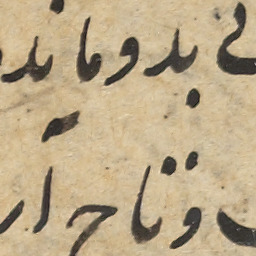 لی بدو ماند
و تاج آر